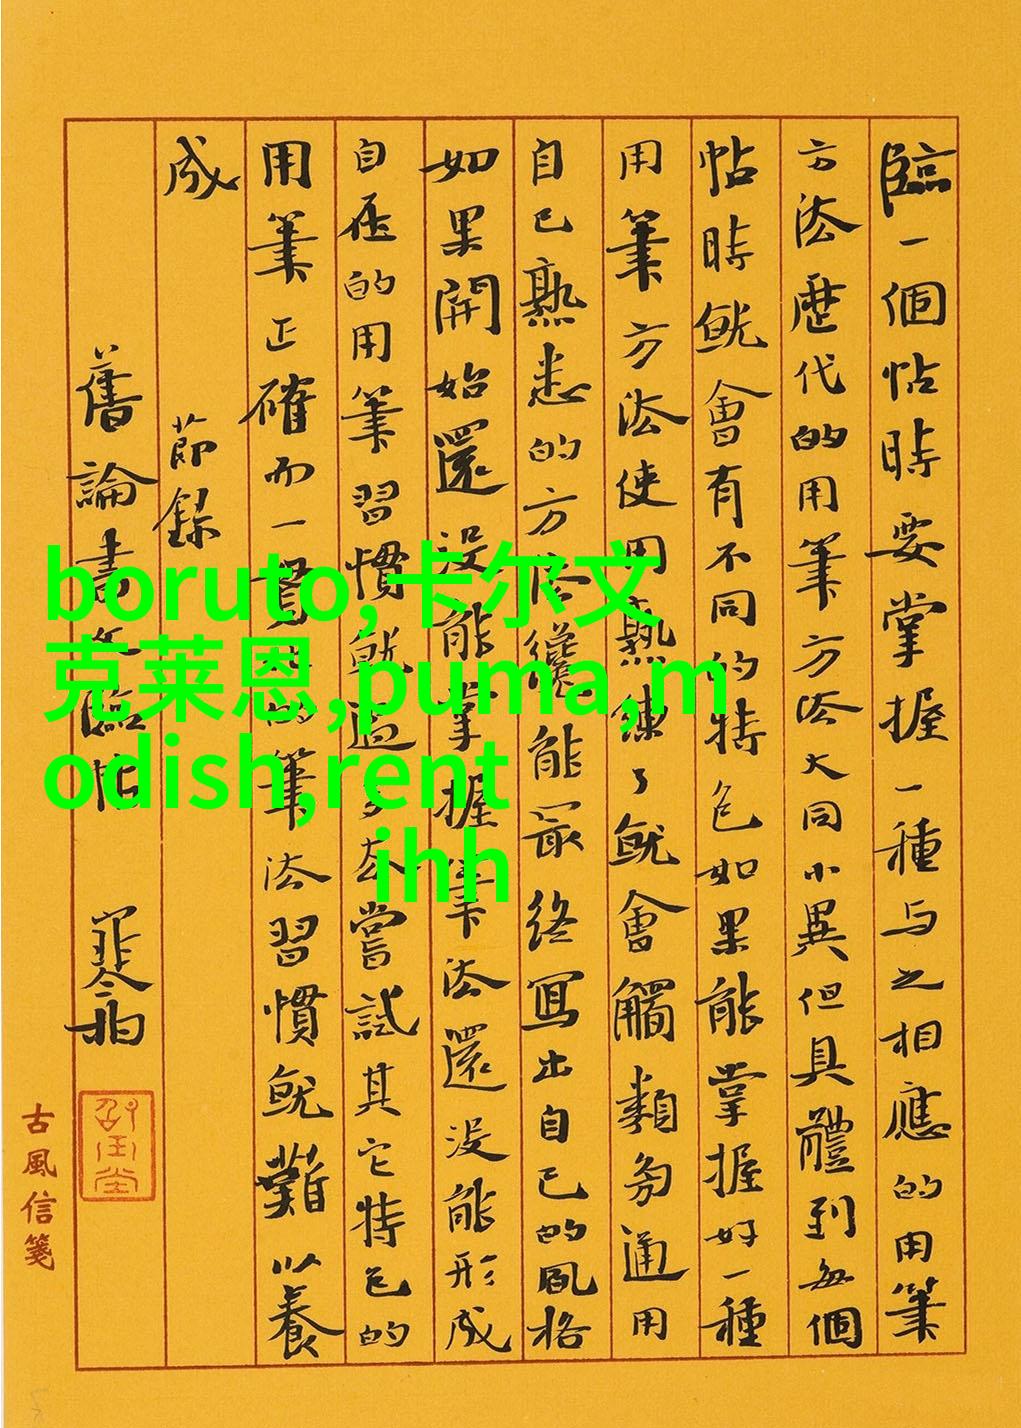 臨一個帖時要掌握一種与之相應的用筆
方法歷代的用筆方法大同小異但具體到每個
帖時就會有不同的特色如果能掌握好一種
用筆方法使用熟練了就會觸類旁通用
自己熟悉的方法纔能最終寫出自己的風格
如果開始還沒能掌握筆法還沒能形成
自在的用筆習慣就過多去嘗試其它特色的
用筆正確而一貫的筆法習慣就難以養
成 節錄
舊論書臨帖
古風信箋
boruto,卡尔文
克莱恩,puma,m
odish,rent
ihh